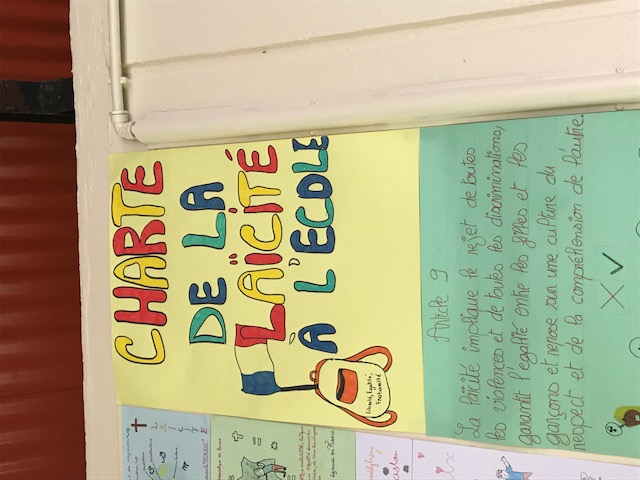 CHARTE
DE LA
LAÏCITÉ
À L'ECOLE
Liberté, Egalité,
Fraternité
Article 9
La laïcité implique le rejet de toutes
les violences et de toutes les discriminations,
garantit l'egalité entre les filles et les
garçons et repose sur une culture du
respect et de la compréhension de l'autre.